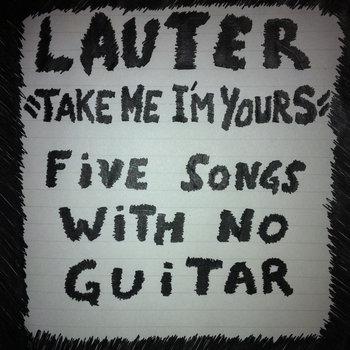 LAUTER
"TAKE ME I'M YOURS"
FiVE SONGS
WiTH NO
GUiTAR